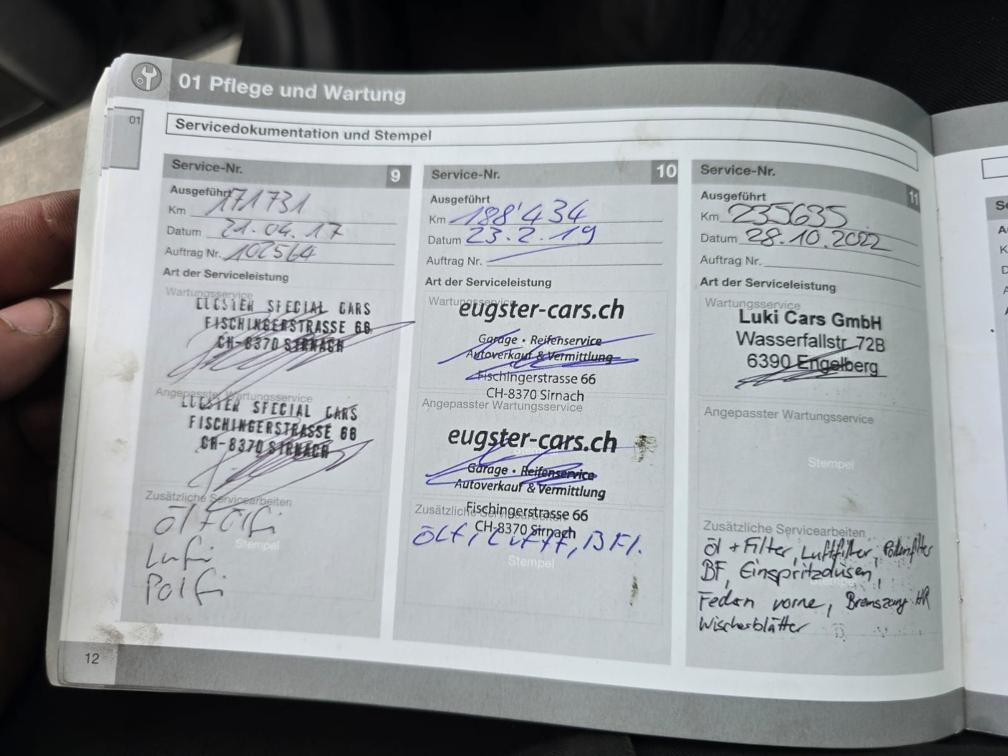 01 Pflege und Wartung
01
Servicedokumentation und Stempel
Service-Nr. 9
Ausgeführt
Km 171731
Datum 21.04.17
Auftrag Nr. 102564
Art der Serviceleistung
Wartungsservice
SPECIAL CARS
FISCHINGERSTRASSE 66
CH-8370 SIRNACH
Angepasster Wartungsservice
SPECIAL CARS
FISCHINGERSTRASSE 66
CH-8370 SIRNACH
Zusätzliche Servicearbeiten
Öl + Ölfi
Stempel
Lufi
Polfi
Service-Nr. 10
Ausgeführt
Km 188'434
Datum 23.2.19
Auftrag Nr.
Art der Serviceleistung
Wartungsservice
eugster-cars.ch
Garage • Reifenservice
Autoverkauf & Vermittlung
Fischingerstrasse 66
CH-8370 Sirnach
Angepasster Wartungsservice
eugster-cars.ch
Garage • Reifenservice
Autoverkauf & Vermittlung
Fischingerstrasse 66
Zusätzliche Servicearbeiten
CH-8370 Sirnach
BFl.
Stempel
Service-Nr. 11
Ausgeführt
Km 235635
Datum 28.10.2022
Auftrag Nr.
Art der Serviceleistung
Wartungsservice
Luki Cars GmbH
Wasserfallstr. 72B
6390 Engelberg
Angepasster Wartungsservice
Stempel
Zusätzliche Servicearbeiten
Öl + Filter, Luftfilter, Pollenfilter
BF, Einspritzdüsen,
Federn vorne, Bremszang HR
Wischerblätter
12